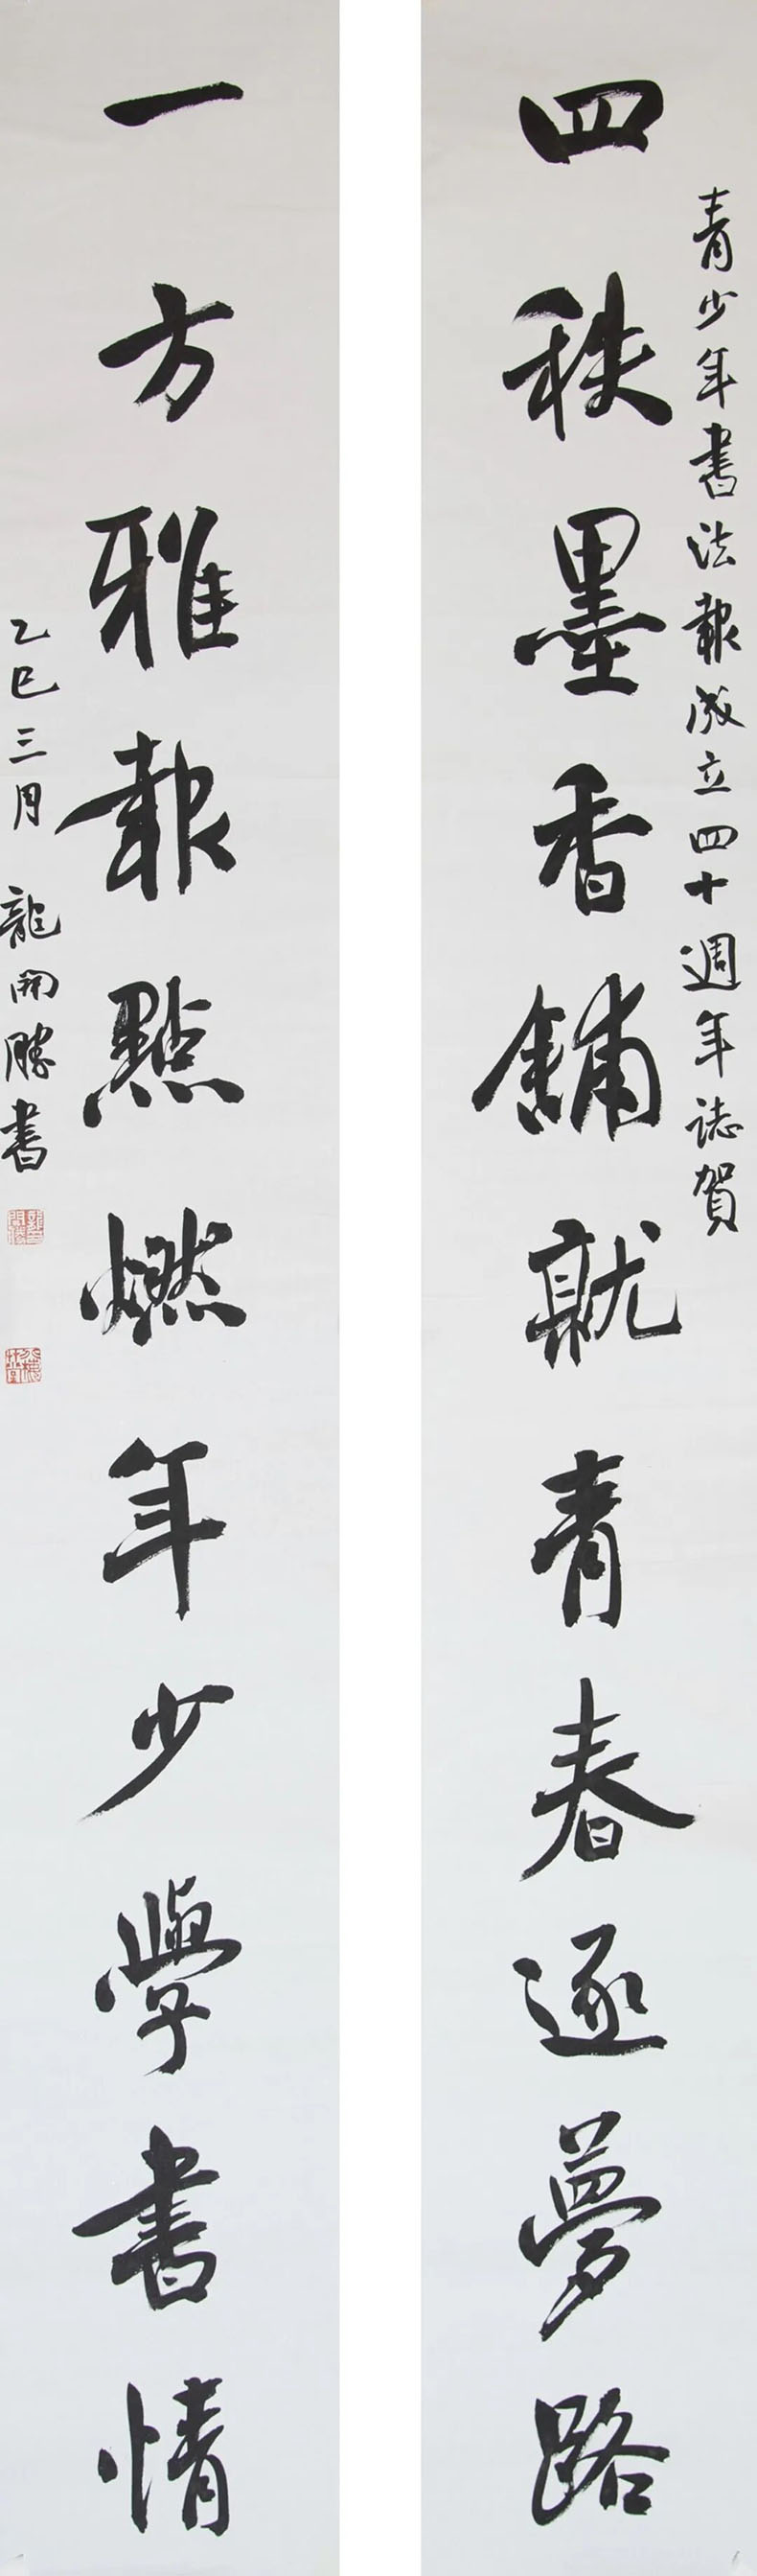 青少年書法報成立四十週年誌賀
四秩墨香鋪就青春逐夢路
一方雅報點燃年少學書情
乙巳三月 龍開勝書